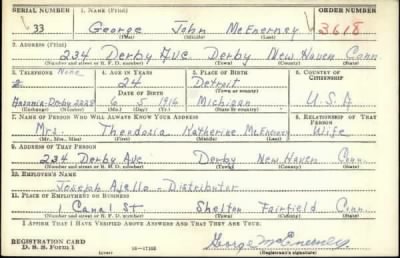 SERIAL NUMBER 1. NAME (Print) ORDER NUMBER
33 George John McEnerney 3618
(First) (Middle) (Last)
2. ADDRESS (Print)
234 Derby Ave. Derby New Haven Conn
(Number and street or R. F. D. number) (Town) (County) (State)
3. TELEPHONE None 4. AGE IN YEARS 5. PLACE OF BIRTH 6. COUNTRY OF CITIZENSHIP
24 Detroit
DATE OF BIRTH (Town or county)
Ansonia-Derby 2228 6 5 1916 Michigan U.S.A
(Exchange) (Number) (Mo.) (Day) (Yr.) (State or country)
7. NAME OF PERSON WHO WILL ALWAYS KNOW YOUR ADDRESS 8. RELATIONSHIP OF THAT PERSON
Mrs. Theodosia Katherine McEnerney Wife
(Mr., Mrs., Miss) (First) (Middle) (Last)
9. ADDRESS OF THAT PERSON
234 Derby Ave. Derby New Haven Conn.
(Number and street or R. F. D. number) (Town) (County) (State)
10. EMPLOYER'S NAME
Joseph Ajello - Distributor
11. PLACE OF EMPLOYMENT OR BUSINESS
1 Canal St Shelton Fairfield Conn.
(Number and street or R. F. D. number) (Town) (County) (State)
I AFFIRM THAT I HAVE VERIFIED ABOVE ANSWERS AND THAT THEY ARE TRUE.
REGISTRATION CARD
D. S. S. Form 1 16-17105 George McEnerney
(Registrant's signature)